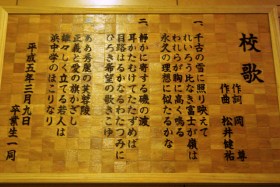 校歌
作詞 岡 尊
作曲 松井健祐
一、千古の雪に照り映えて
れいろう比なき富士が嶺は
われらが胸に高く鳴る
永久の理想に似たるかな
二、静かに寄する磯の波
耳かたむけてたたずめば
目路はるかなるわたつみに
ひろき希望の歌きこゆ
ああ秀麗の芙蓉陵
正義と愛の旗かざし
雄々しく立てる若人は
浜中学のほこりなり
平成五年三月九日
卒業生一同